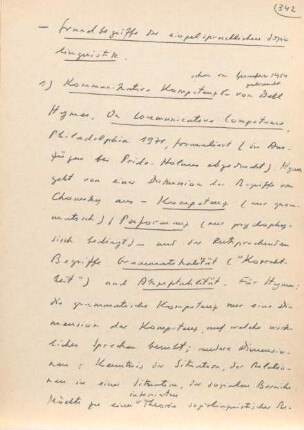 (342
— Grundbegriffe der einzelsprachlichen Sozio-
linguistik.
schon von Gumperz 1964
gebraucht
1) Kommunikative Kompetenz von Dell
Hymes, On Communicative Competence,
Philadelphia 1971, formuliert (in Aus-
zügen bei Pride-Holmes abgedruckt). Hymes
geht von einer Diskussion der Begriffe von
Chomsky aus – Kompetenz (nur gram-
matisch) / Performanz (nur psychophy-
sisch bedingt) – und der entsprechenden
Begriffe Grammatikalität ("Korrekt-
heit") und Akzeptabilität. Für Hymes
die grammatische Kompetenz nur eine Di-
mension der Kompetenz, auf welche wirk-
liches Sprechen beruht; andere Dimensio-
nen: Kenntnis der Situation, der Relatio-
nen in einer Situation, der sozialen Bereiche
Möchte zu einer Theorie soziolinguistischer